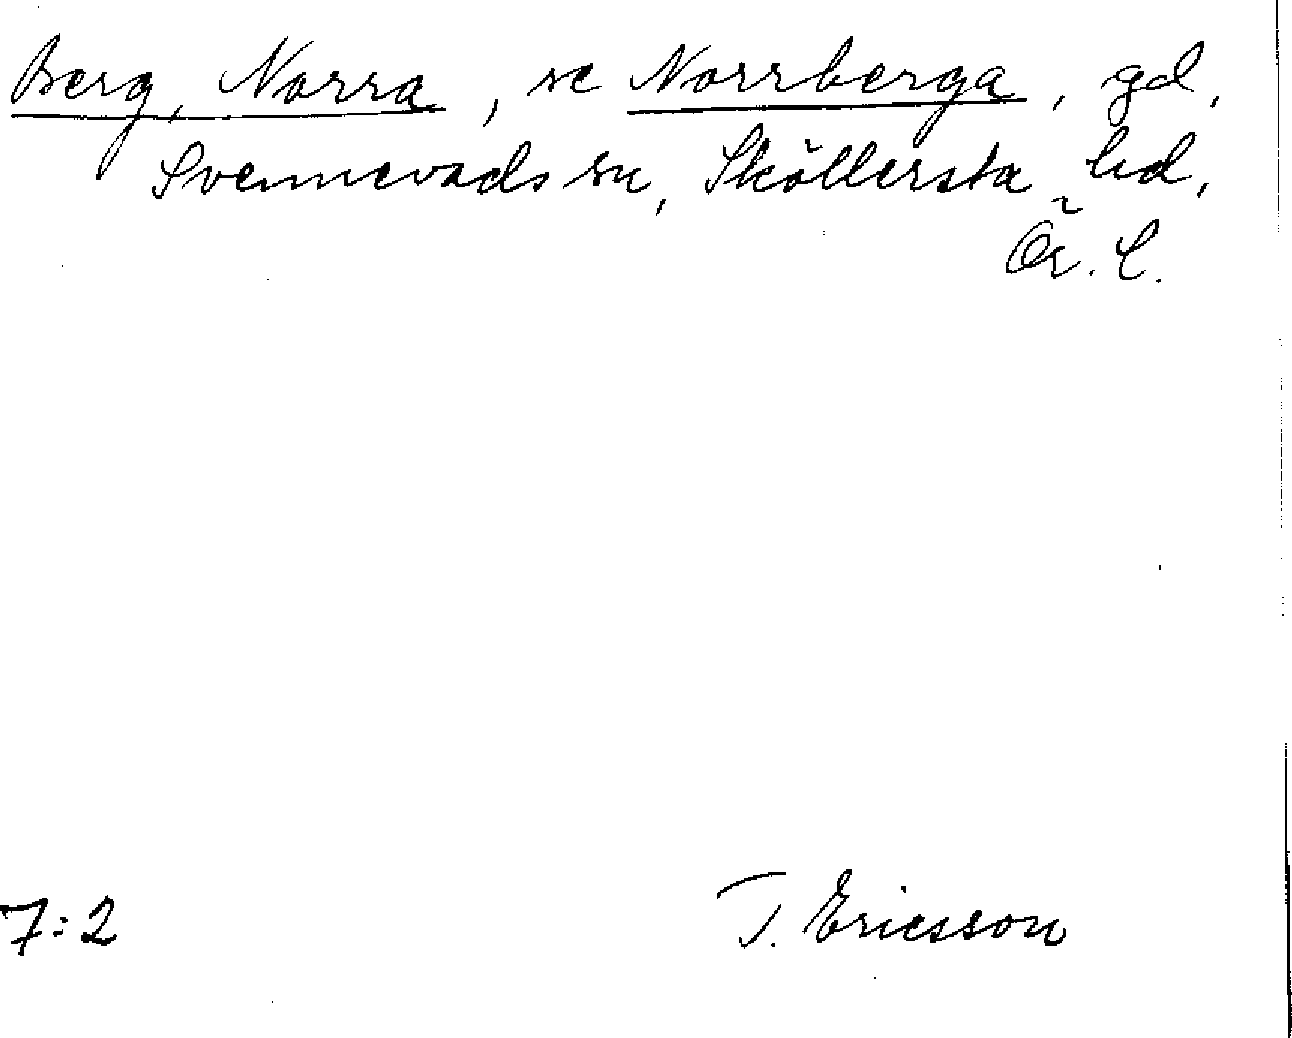 Berg, Norra, se Norrberga, gd,
Svennevads sn, Sköllersta hd,
Ör. l.
7:2
T. Ericsson